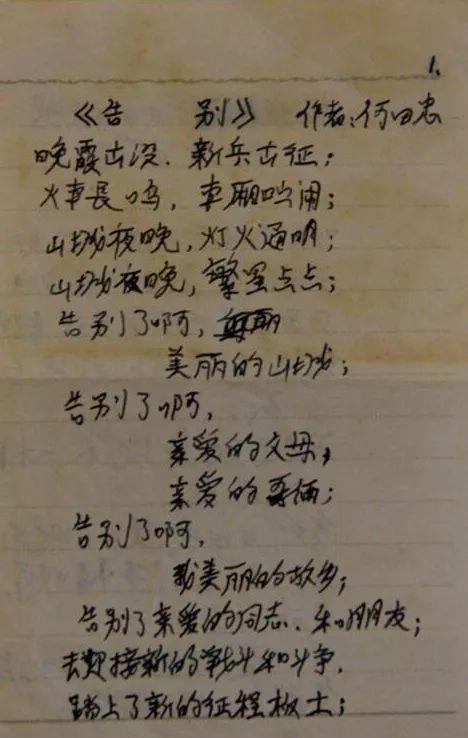 1.
《告 别》 作者:何田忠
晚霞出没、新兵出征;
火车長鸣,车厢吵闹;
山城夜晚,灯火通明;
山城夜晚,繁星点点;
告别了啊,
美丽的山城;
告别了啊,
亲爱的父母,
亲爱的哥俩;
告别了啊,
我美丽的故乡;
告别了亲爱的同志、和朋友;
去迎接新的战斗和斗争,
踏上了新的征程极土;